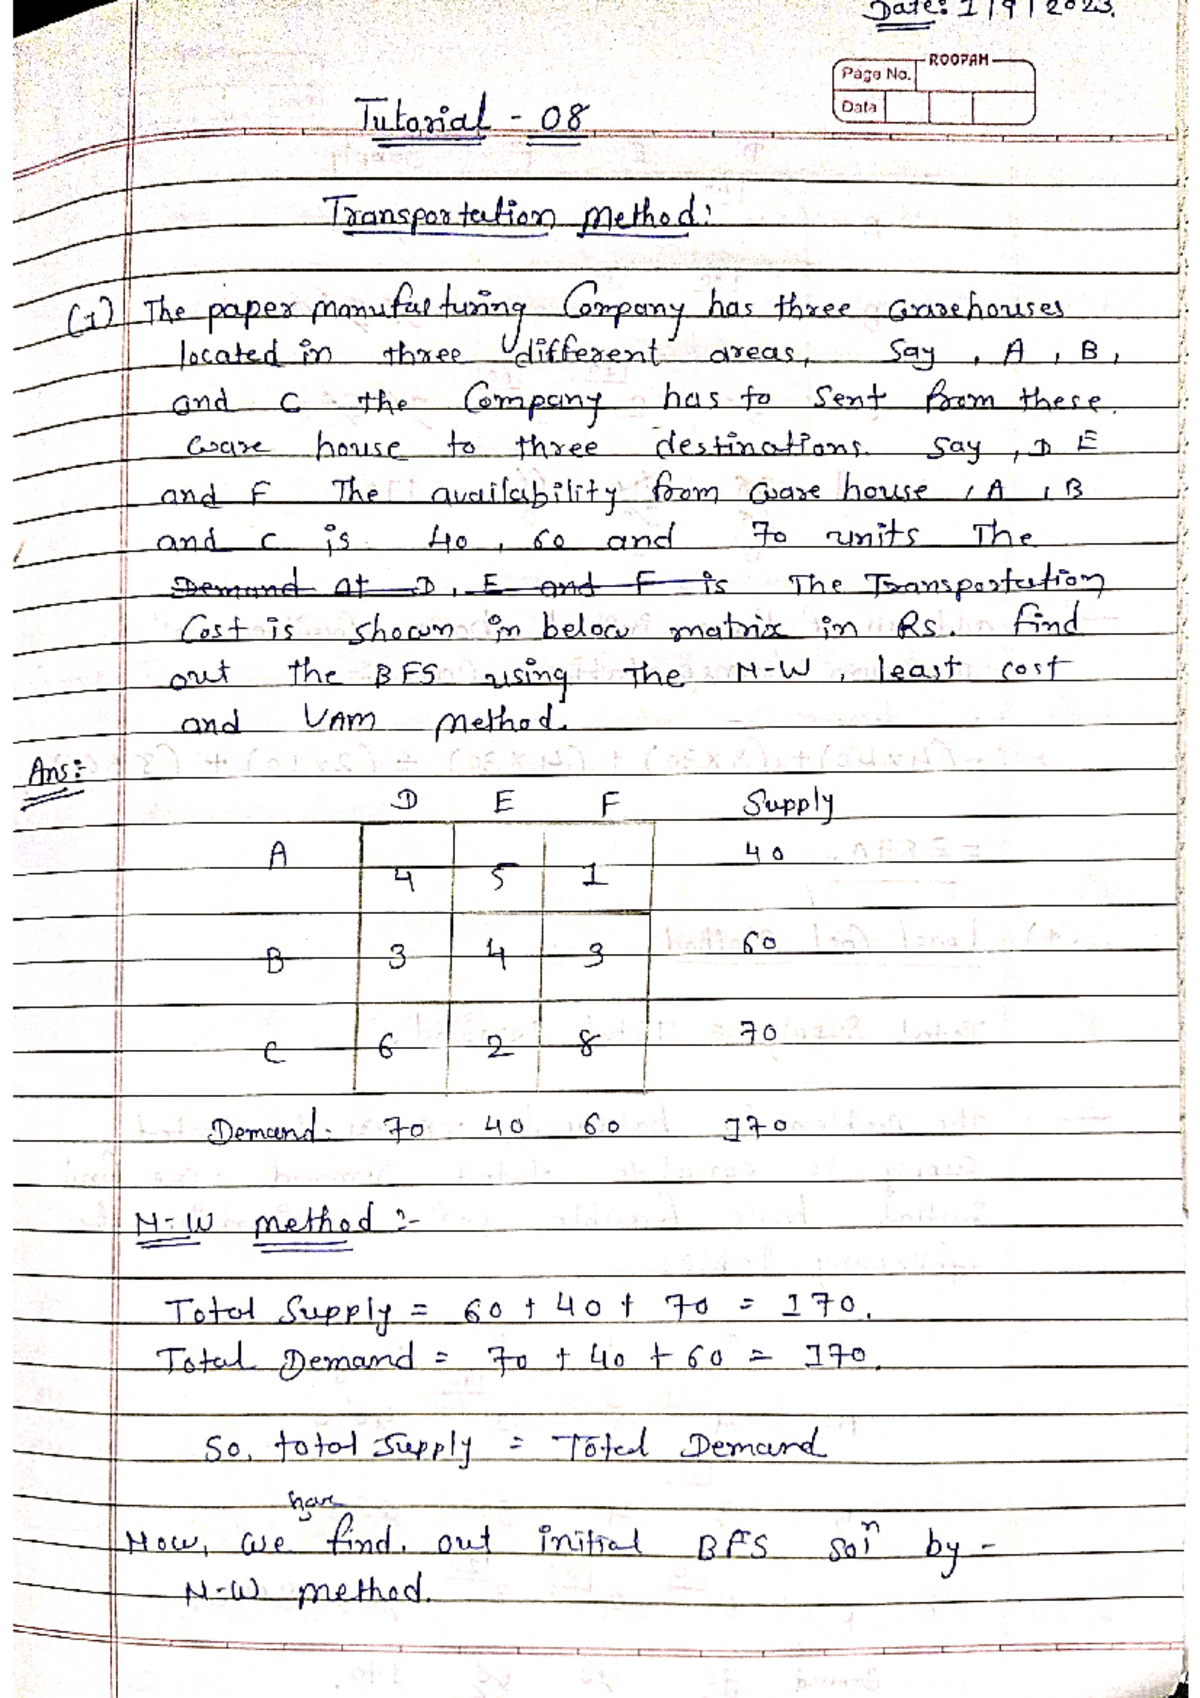 Date: 1/9/2023.
ROOPAM
Page No.
Data
Tutorial - 08
Transportation Method:
(1) The paper manufacturing Company has three warehouses
located in three different areas, Say, A, B,
and C the Company has to Sent from these
ware house to three destinations. Say, D E
and F The availability from ware house, A, B
and C is 40, 60 and 70 units The
Demand at D, E and F is The Transportation
Cost is shown in below matrix in Rs. find
out the BFS using The N-W, least cost
and VAM Method.
Ans:-
D E F Supply
A 4 5 1 40
B 3 4 3 60
C 6 2 8 70
Demand. 70 40 60 170
N-W Method :-
Total Supply = 60 + 40 + 70 = 170.
Total Demand = 70 + 40 + 60 = 170.
So, total Supply = Total Demand
have
Now, we find. out initial BFS soiⁿ by -
N-W method.